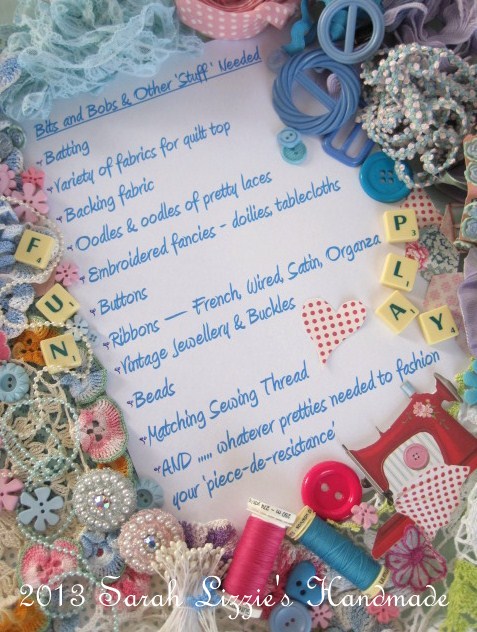 Bits and Bobs & Other 'Stuff' Needed
Batting
Variety of fabrics for quilt top
Backing fabric
Oodles & oodles of pretty laces
Embroidered fancies - doilies, tablecloths
Buttons
Ribbons — French, Wired, Satin, Organza
Vintage Jewellery & Buckles
Beads
Matching Sewing Thread
AND ..... whatever pretties needed to fashion
your 'piece-de-resistance'
FUN
PLAY
2013 Sarah Lizzie's Handmade